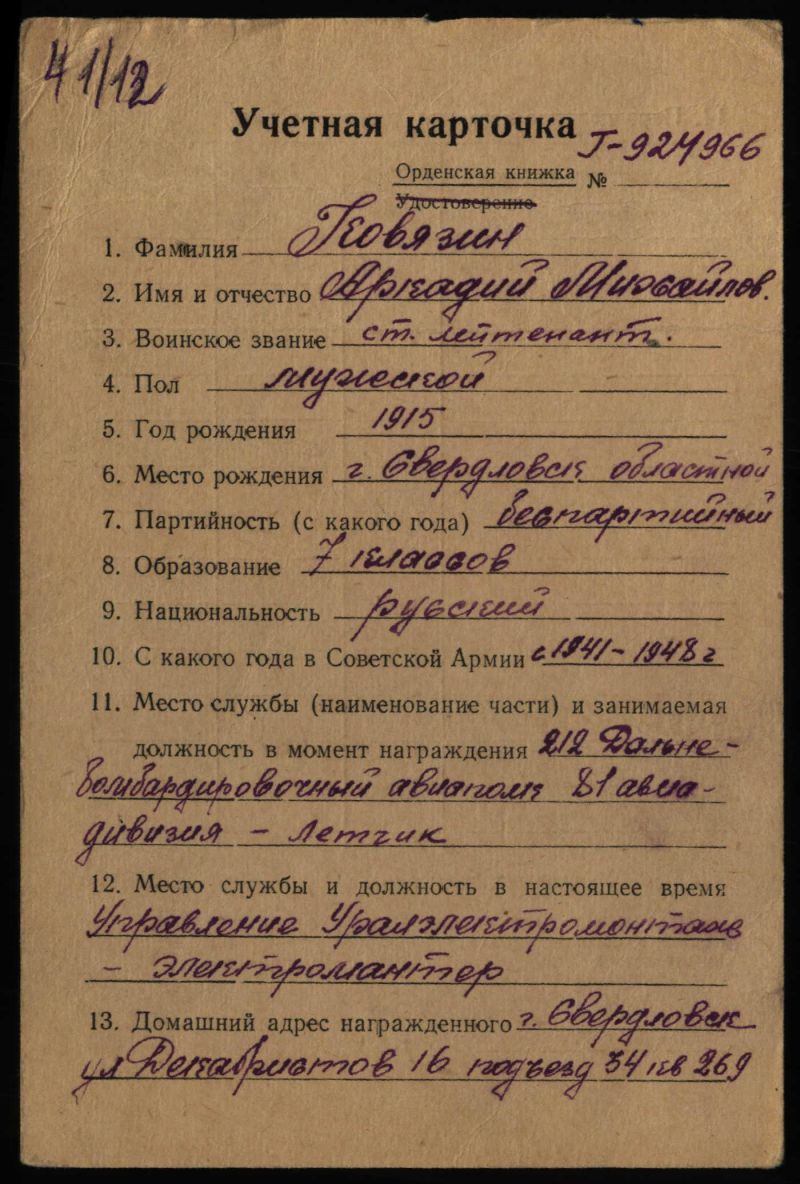 41/12
Учетная карточка
Г-924966
Орденская книжка №
Удостоверение
1. Фамилия Ковязин
2. Имя и отчество Аркадий Михайлов.
3. Воинское звание ст. лейтенант.
4. Пол мужской
5. Год рождения 1915
6. Место рождения г. Свердловск областной
7. Партийность (с какого года) беспартийный
8. Образование 7 классов
9. Национальность русский
10. С какого года в Советской Армии с 1941-1948 г
11. Место службы (наименование части) и занимаемая
должность в момент награждения 212 Дальне-
бомбардировочный авиаполк 81 авиа-
дивизия - Летчик
12. Место службы и должность в настоящее время
Управление Уралэлектромонтаж
- электромантер
13. Домашний адрес награжденного г. Свердловск
ул Декабристов 16 подъезд 34 кв 269